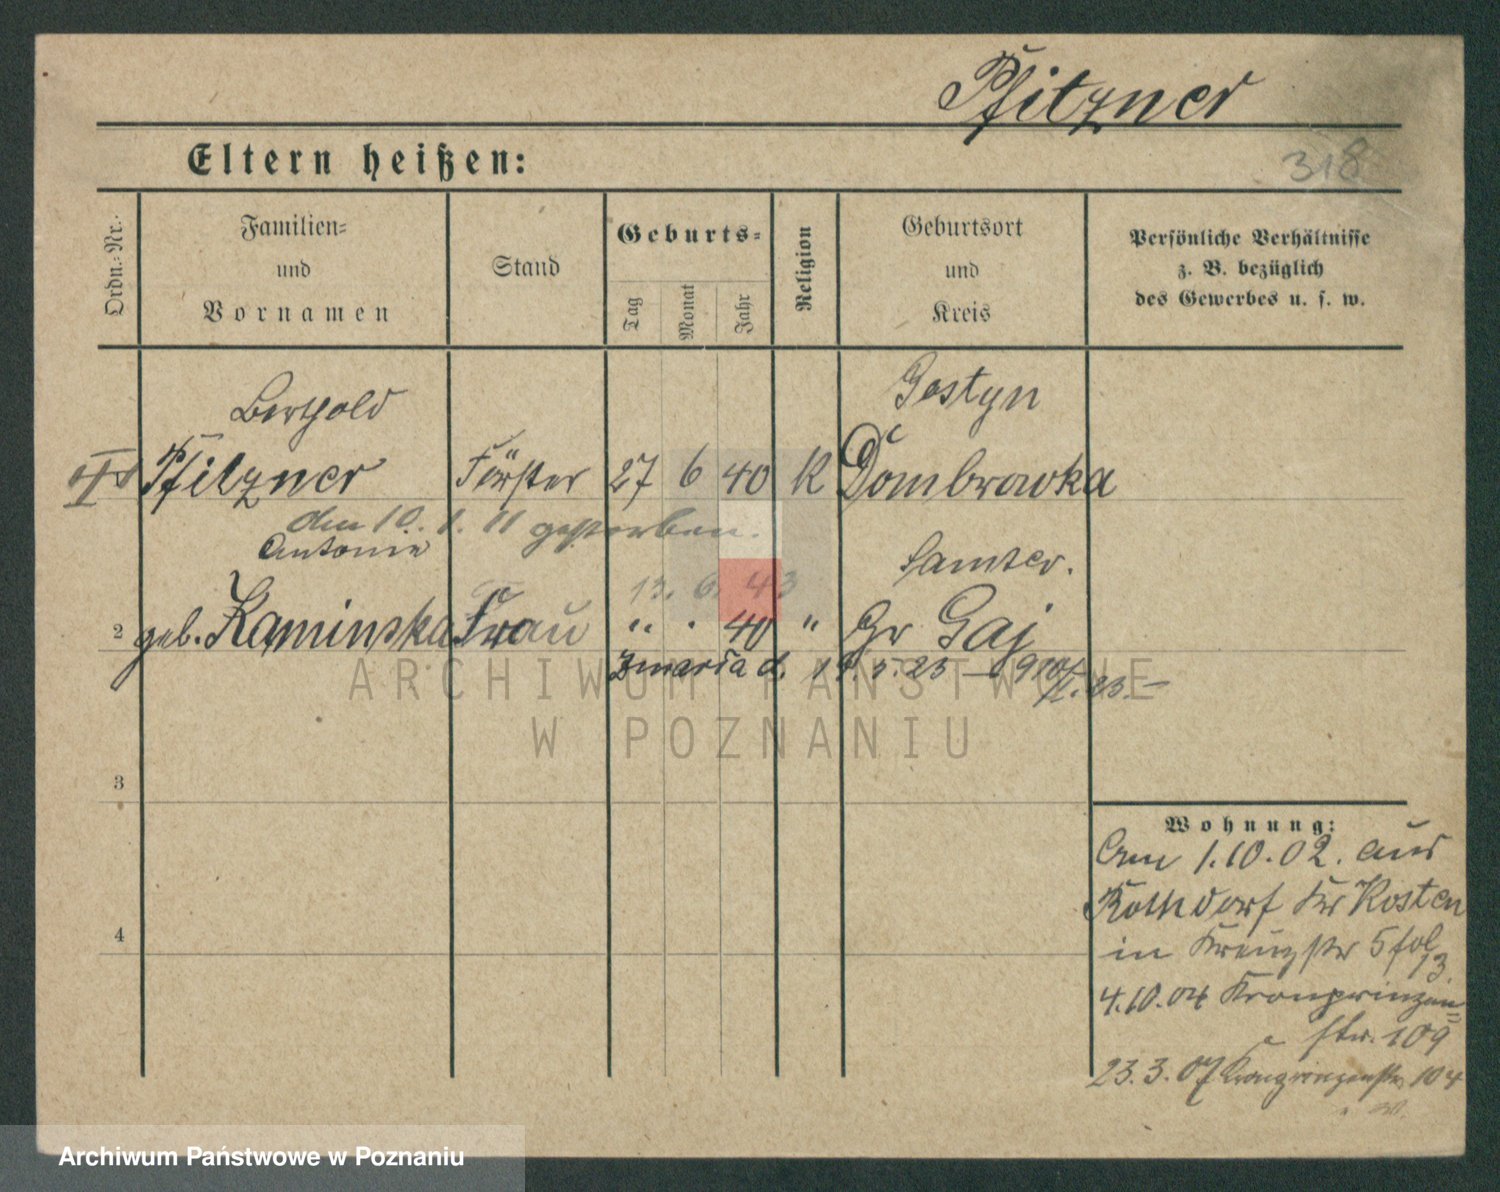 Pfitzner
Eltern heißen:
318
Ordn.-Nr.
Familien-
und
Vornamen
Stand
Geburts-
Tag
Monat
Jahr
Religion
Geburtsort
und
Kreis
Persönliche Verhältnisse
z. B. bezüglich
des Gewerbes u. s. w.
Berthold
Gostyn
Pfitzner Förster 27 6 40 K Dombrowka
den 10. 1. 11 gestorben.
Antonie
Samter.
13. 6. 43
2 geb. Kaminska Frau " " 40 " Gr Gaj
Zmarła d. 19. 5. 23
23.
ARCHIWUM PAŃSTWOWE
W POZNANIU
3
4
Wohnung:
Am 1.10.02. aus
Rothdorf Kr Kosten
in Kreuzstr 5 fol
13.
4.10.04 Kronprinzen=
str. 109
23.3.07 Kronprinzenstr. 104
Archiwum Państwowe w Poznaniu